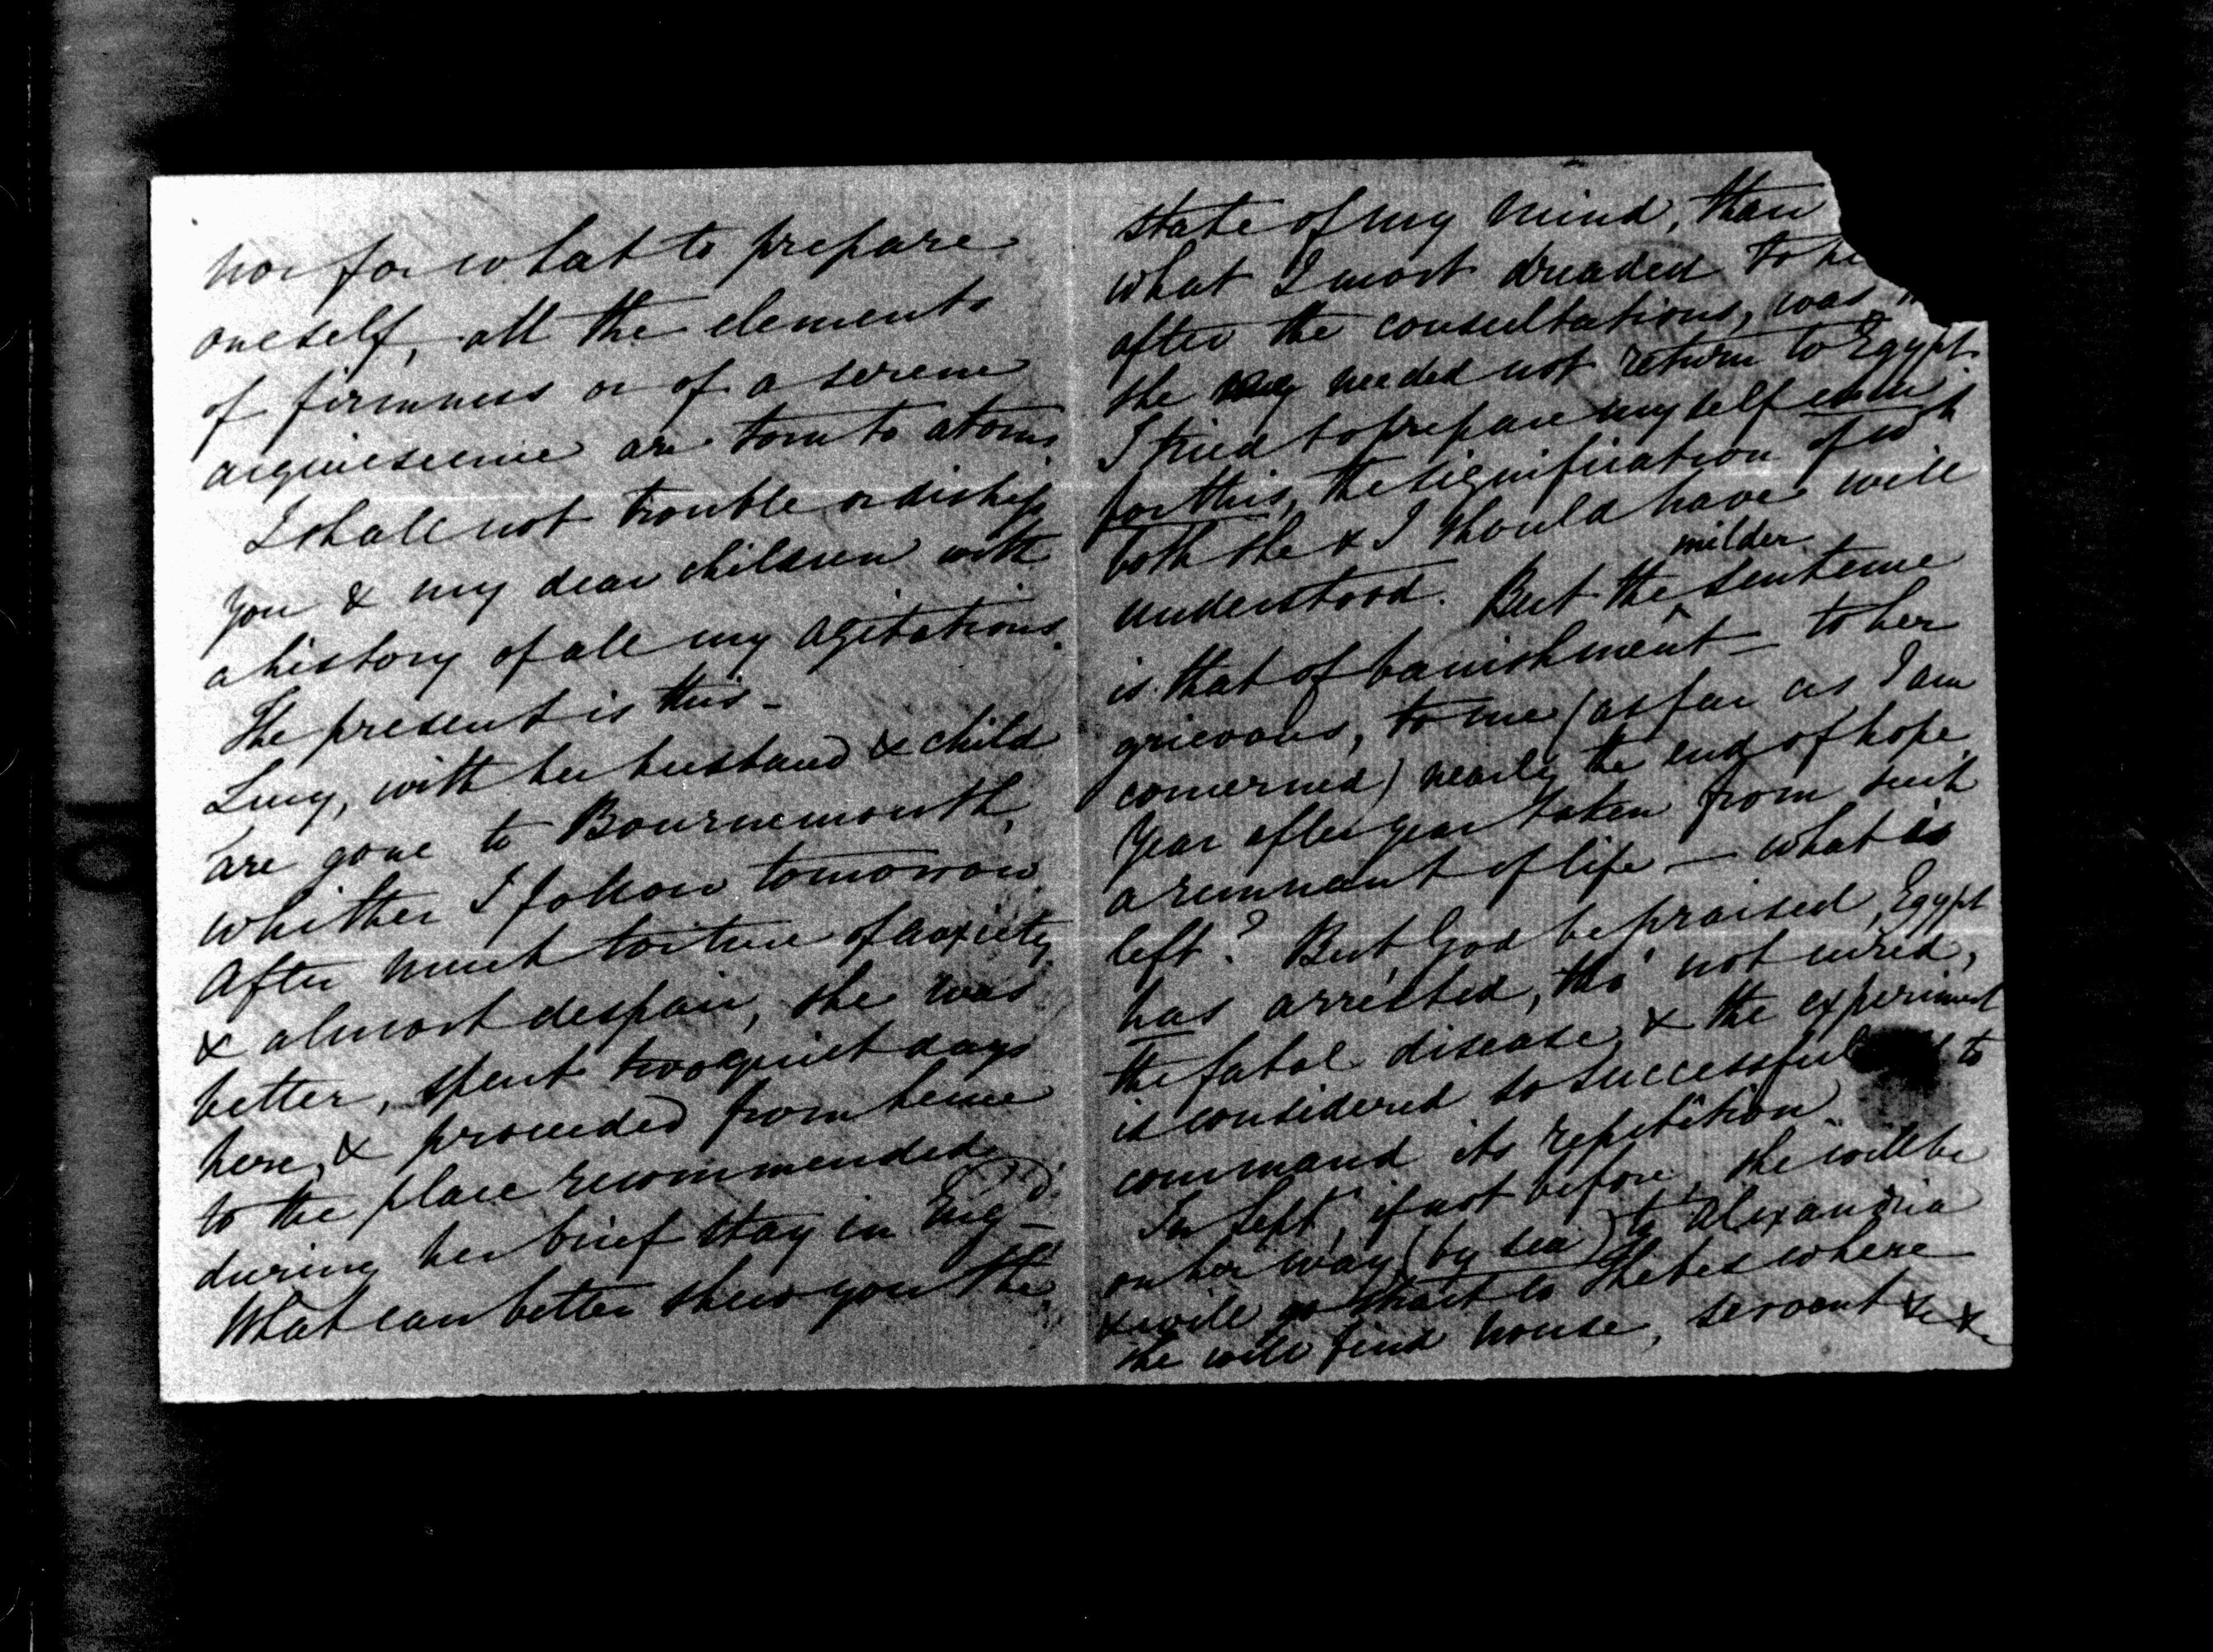 nor for what to prepare
oneself, all the elements
of firmness or of a serene
acquiescence are torn to atoms.
I shall not trouble or
you & my dear children with
a history of all my agitations.
The present is this –
Lucy, with her husband & child
are gone to Bournemouth,
whither I follow tomorrow.
After much torture of anxiety
& almost despair, she was
better, spent two quiet days
here, & proceeded from hence
to the place recommended
during her brief stay in Engd.
What can better shew you the
state of my mind, than
what I most dreaded to he
after the consultations, was
she needed not return to Egypt.
I tried to prepare myself even
for this, the signification of wch
both she & I should have well
understood. But the milder sentence
is that of banishment – to her
grievous, to me (as far as I am
concerned) nearly the end of hope.
Year after year taken from such
a remnant of life – what is
left? But God be praised, Egypt
has arrested, tho' not cured,
the fatal disease, & the experiment
is considered so successful to
command its repetition.
In Sept, if not before, she will be
on her way (by sea) to Alexandria
& will go strait to Thebes where
she will find house, servant &c &c